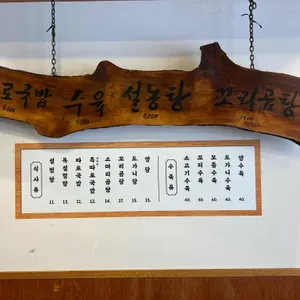 로국밥 수육 설농탕 꼬리곰탕
식사류
설렁탕 11.
특설렁탕 13.
따로국밥 11.
특따로국밥 12.
소머리곰탕 14.
꼬리곰탕 17.
도가니탕 15.
양탕 15.
수육류
소고기수육 40.
꼬리수육 60.
모듬수육 60.
도가니수육 40.
양수육 40.